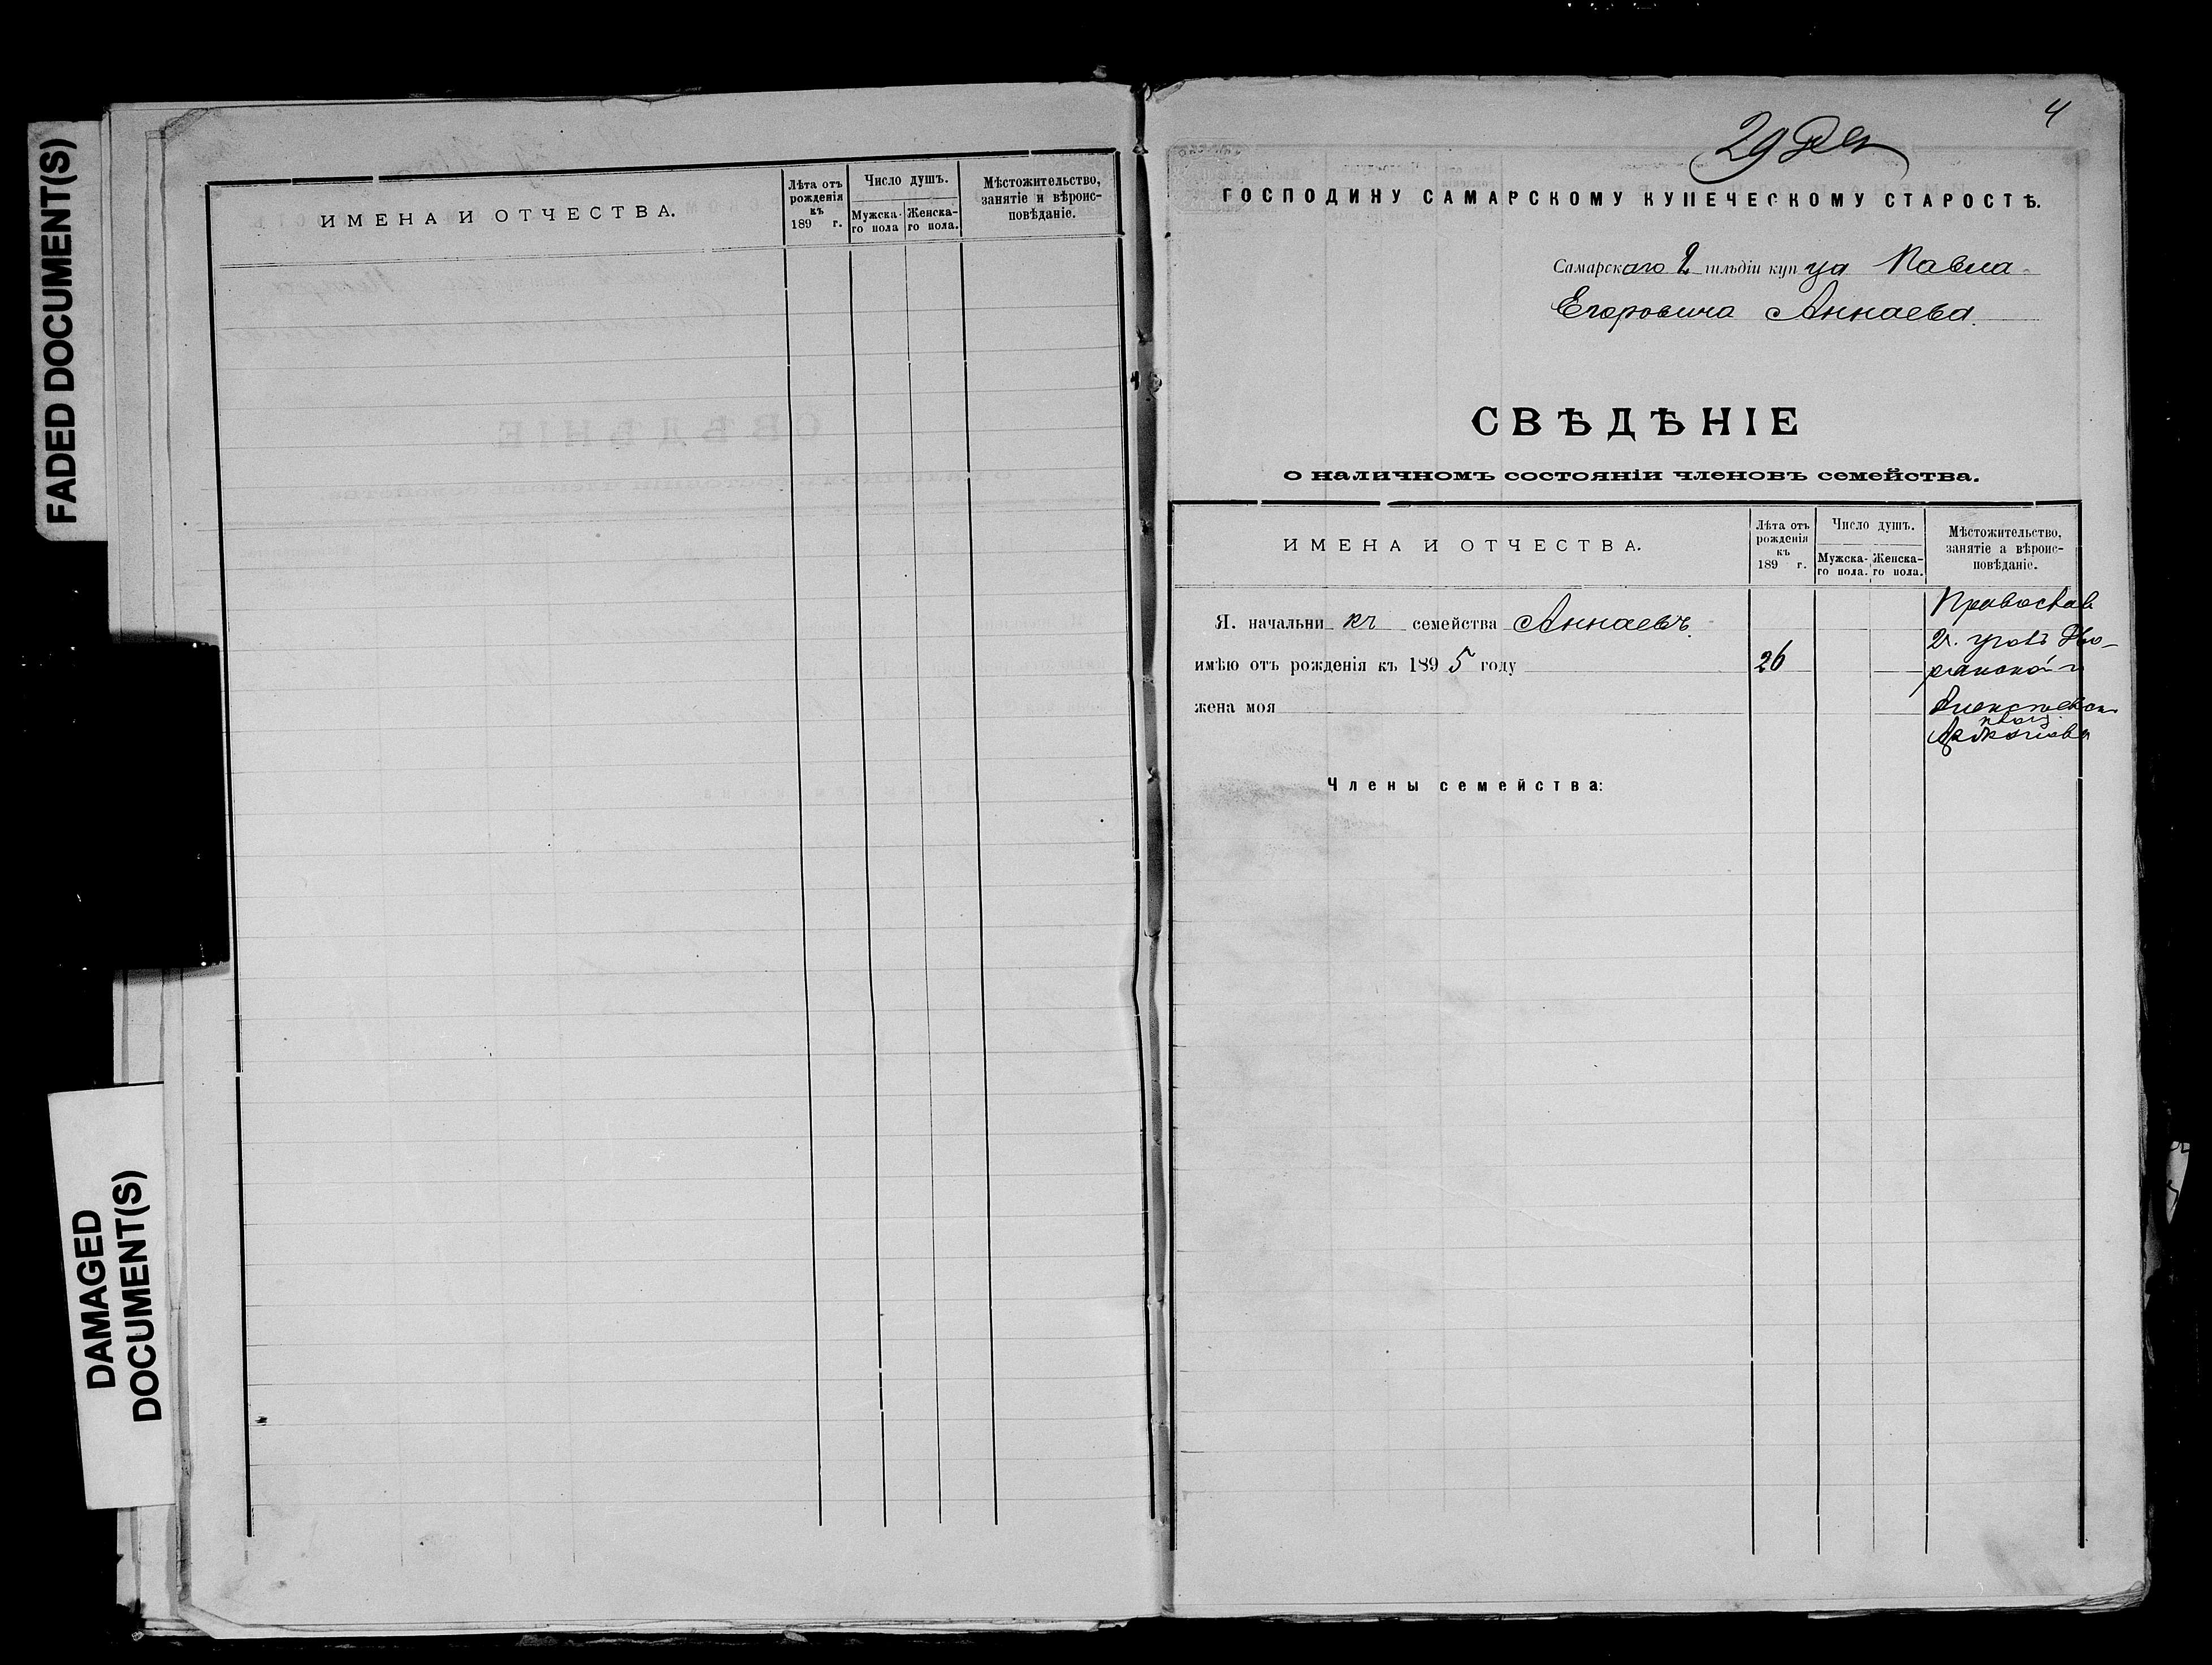 FADED DOCUMENT(S)
DAMAGED
DOCUMENT(S)
ИМЕНА И ОТЧЕСТВА.
Лѣта отъ
рожденія
къ
189 г.
Число душъ.
Мужска-
го пола
Женска-
го пола.
Мѣстожительство,
занятіе и вѣроис-
повѣданіе.
4
29 Дек
ГОСПОДИНУ САМАРСКОМУ КУПЕЧЕСКОМУ СТАРОСТѢ.
Самарскаго 2 гильдіи купца Павла
Егоровича Аннаева.
СВѢДѢНІЕ
о наличномъ состояніи членовъ семейства.
ИМЕНА И ОТЧЕСТВА.
Лѣта отъ
рожденія
къ
189 г.
Число душъ.
Мужска-
го пола.
Женска-
го пола.
Мѣстожительство,
занятіе а вѣроис-
повѣданіе.
Я. начальникъ семейства Аннаевъ.
имѣю отъ рожденія къ 1895 году 26
жена моя
Православ
2 ч. уголъ Дво-
рянской и
Алексѣевск.
площ.
Члены семейства: